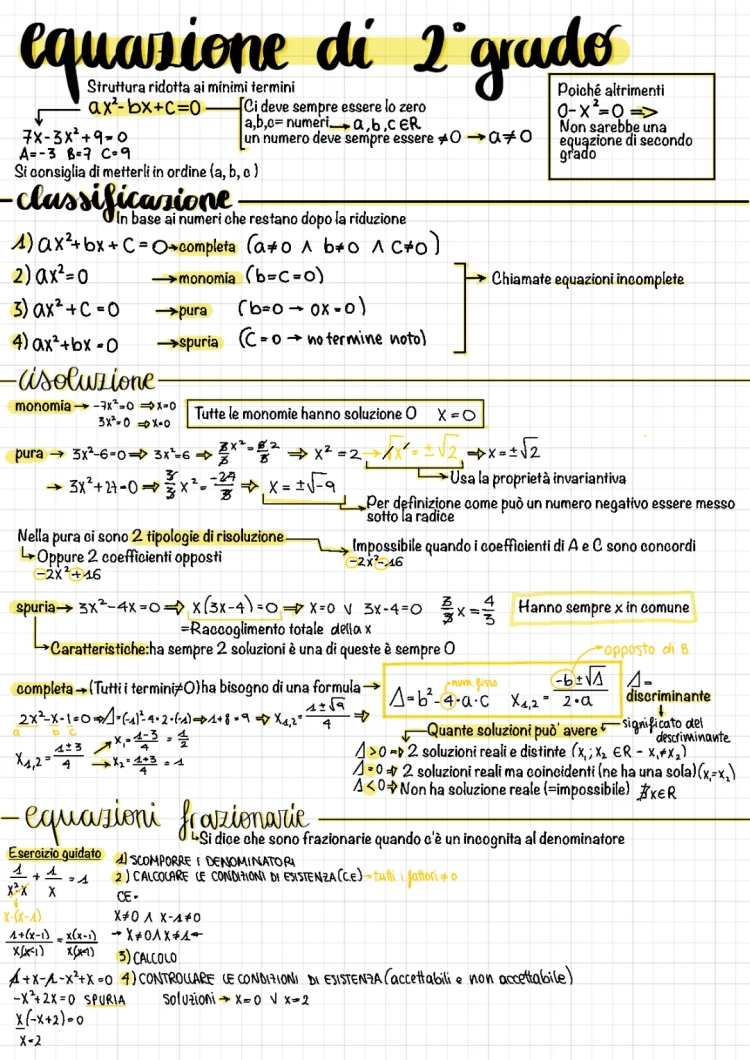 equazione di 2° grado
Struttura ridotta ai minimi termini
ax²-bx+c=0
Ci deve sempre essere lo zero
a,b,c= numeri → a,b,c ∈ R
un numero deve sempre essere ≠0 → a≠0
Poiché altrimenti
0-x²=0 =>
Non sarebbe una
equazione di secondo
grado
7x-3x²+9=0
A=-3 B=7 C=9
Si consiglia di metterli in ordine (a, b, c)
classificazione
In base ai numeri che restano dopo la riduzione
1) ax²+bx+c=0 → completa (a≠0 ∧ b≠0 ∧ c≠0)
2) ax²=0 → monomia (b=c=0)
3) ax²+c=0 → pura (b=0 → 0x=0)
4) ax²+bx=0 → spuria (c=0 → no termine noto)
Chiamate equazioni incomplete
risoluzione
monomia → -7x²=0 => x=0
3x²=0 => x=0
Tutte le monomie hanno soluzione 0 x=0
pura → 3x²-6=0 => 3x²=6 => 3/3 x²=6/3 2 => x²=2 → √x²=±√2 => x=±√2
Usa la proprietà invariantiva
→ 3x²+27=0 => 3/3 x²=-27/3 => x=±√-9
Per definizione come può un numero negativo essere messo
sotto la radice
Nella pura ci sono 2 tipologie di risoluzione
Impossibile quando i coefficienti di A e C sono concordi
-2x²-16
Oppure 2 coefficienti opposti
-2x²+16
spuria → 3x²-4x=0 => x(3x-4)=0 => x=0 ∨ 3x-4=0 3/3 x=4/3
Hanno sempre x in comune
=Raccoglimento totale della x
Caratteristiche:ha sempre 2 soluzioni è una di queste è sempre 0
opposto di B
completa → (Tutti i termini≠0)ha bisogno di una formula →
num. fisso
Δ=b²-4·a·c x₁,₂ = -b±√Δ / 2·a
Δ=
discriminante
significato del
descriminante
2x²-x-1=0 => Δ=(-1)²-4·2·(-1) => 1+8=9 => x₁,₂ = 1±√9 / 4 =>
a b c
x₁,₂ = 1±3 / 4
x₁ = 1-3 / 4 = 1/2
x₂ = 1+3 / 4 = 1
Quante soluzioni può' avere
Δ>0 => 2 soluzioni reali e distinte (x₁; x₂ ∈R - x₁≠x₂)
Δ=0 => 2 soluzioni reali ma coincidenti (ne ha una sola)(x₁=x₂)
Δ<0 => Non ha soluzione reale (=impossibile) ∄x∈R
equazioni frazionarie
Si dice che sono frazionarie quando c'è un incognita al denominatore
Esercizio guidato
1/x²-x + 1/x = 1
x·(x-1)
1+(x-1) / x(x-1) = x(x-1) / x(x-1)
1+x-1-x²+x=0
-x²+2x=0 SPURIA
x(-x+2)=0
x=2
1) SCOMPORRE I DENOMINATORI
2) CALCOLARE LE CONDIZIONI DI ESISTENZA(C.E) → tutti i fattori ≠0
CE=
x≠0 ∧ x-1≠0
→ x≠0 ∧ x≠1
3) CALCOLO
4) CONTROLLARE LE CONDIZIONI DI ESISTENZA (accettabili e non accettabile)
Soluzioni → x=0 ∨ x=2